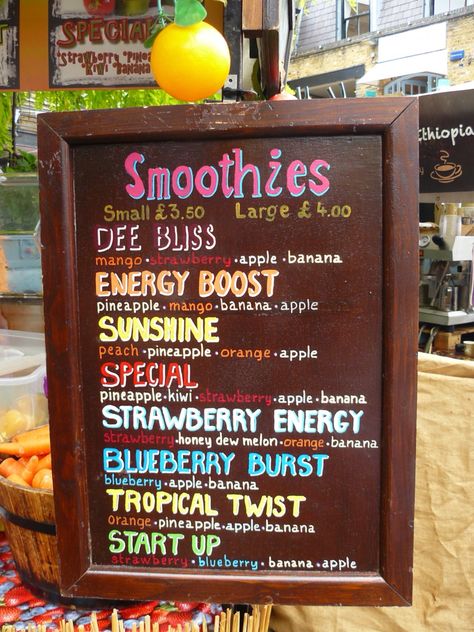 SPECIAL
"Strawberry "Pineapple
"Kiwi "Banana
Ethiopia
Smoothies
Small £3.50 Large £4.00
DEE BLISS
mango•strawberry•apple•banana
ENERGY BOOST
pineapple•mango•banana•apple
SUNSHINE
peach•pineapple•orange•apple
SPECIAL
pineapple•kiwi•strawberry•apple•banana
STRAWBERRY ENERGY
strawberry•honey dew melon•orange•banana
BLUEBERRY BURST
blueberry•apple•banana
TROPICAL TWIST
orange•pineapple•apple•banana
START UP
strawberry•blueberry•banana•apple